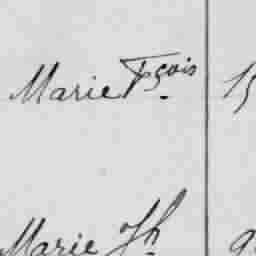 Marie Fçois 15
Marie Jh